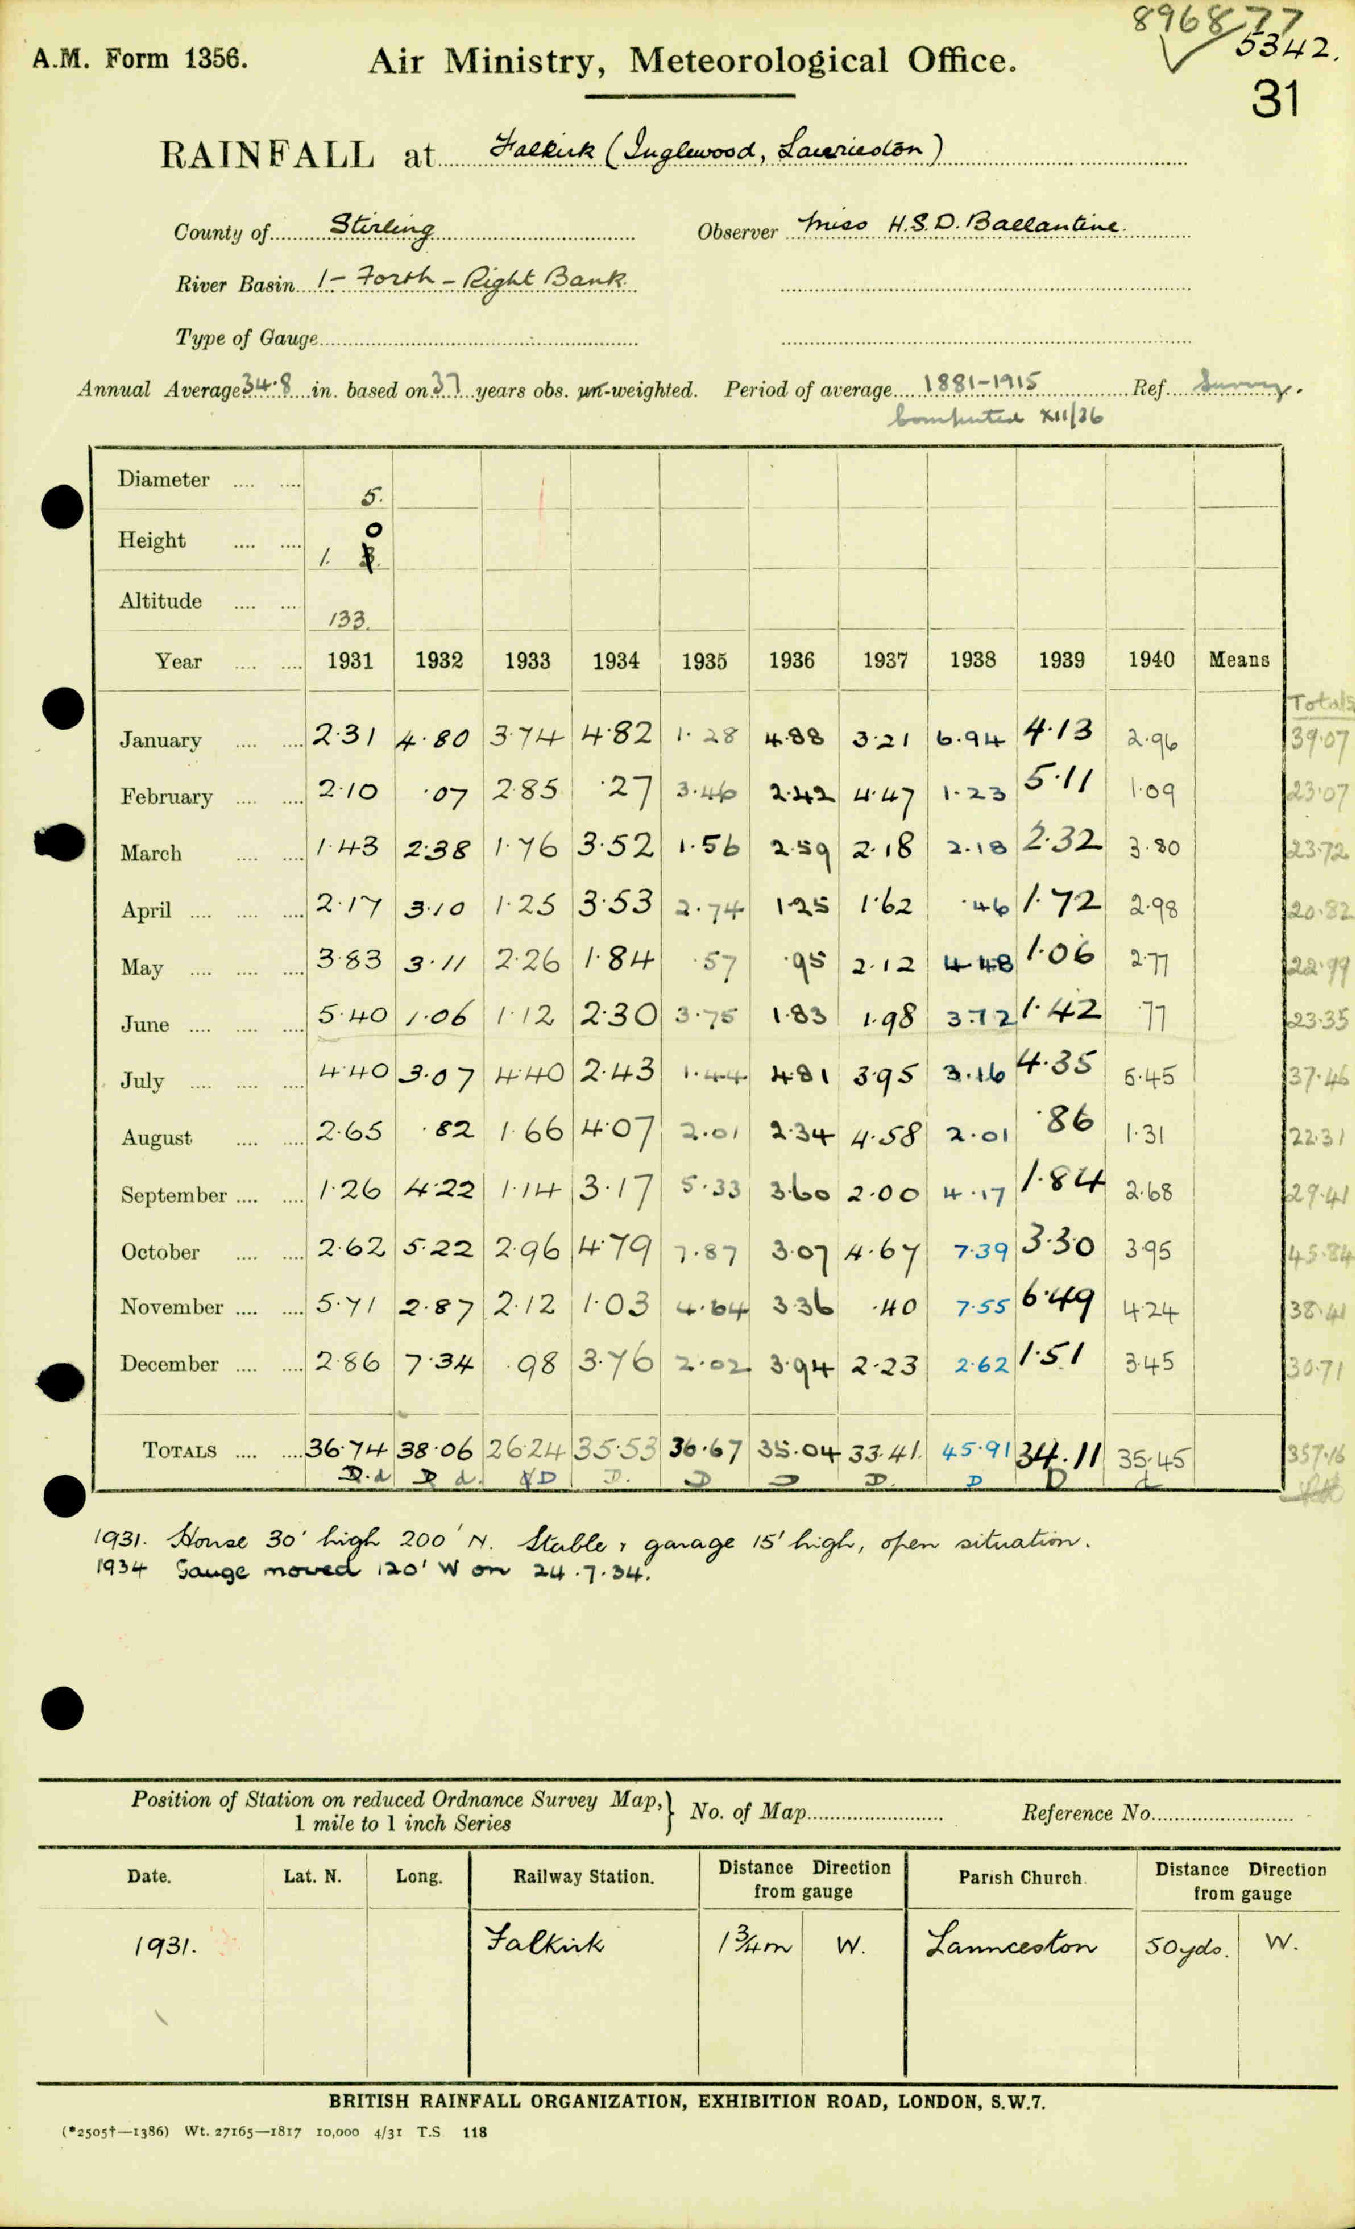 896877
5342.
A.M. Form 1356. Air Ministry, Meteorological Office.
31
RAINFALL at Falkirk (Inglewood, Laurieston)
County of Stirling Observer Miss H.S.D. Ballantine.
River Basin 1 - Forth - Right Bank.
Type of Gauge
Annual Average 34.8 in. based on 37 years obs. un-weighted. Period of average 1881-1915 Ref. Survey.
Computed XII/36
Diameter 5.
Height 1. 0
Altitude 133.
Year 1931 1932 1933 1934 1935 1936 1937 1938 1939 1940 Means
Totals
January 2.31 4.80 3.74 4.82 1.28 4.88 3.21 6.94 4.13 2.96 39.07
February 2.10 .07 2.85 .27 3.46 2.42 4.47 1.23 5.11 1.09 23.07
March 1.43 2.38 1.76 3.52 1.56 2.59 2.18 2.18 2.32 3.80 23.72
April 2.17 3.10 1.25 3.53 2.74 1.25 1.62 .46 1.72 2.98 20.82
May 3.83 3.11 2.26 1.84 .57 .95 2.12 4.48 1.06 2.77 22.99
June 5.40 1.06 1.12 2.30 3.75 1.83 1.98 3.72 1.42 .77 23.35
July 4.40 3.07 4.40 2.43 1.44 4.81 3.95 3.16 4.35 5.45 37.46
August 2.65 .82 1.66 4.07 2.01 2.34 4.58 2.01 .86 1.31 22.31
September 1.26 4.22 1.14 3.17 5.33 3.60 2.00 4.17 1.84 2.68 29.41
October 2.62 5.22 2.96 4.79 7.87 3.07 4.67 7.39 3.30 3.95 45.84
November 5.71 2.87 2.12 1.03 4.64 3.36 .40 7.55 6.49 4.24 38.41
December 2.86 7.34 .98 3.76 2.02 3.94 2.23 2.62 1.51 3.45 30.71
TOTALS 36.74 38.06 26.24 35.53 36.67 35.04 33.41 45.91 34.11 35.45 357.16
D.d D d. D D. D D D. D D d
1931. House 30' high 200' N. Stable & garage 15' high, open situation.
1934 Gauge moved 120' W on 24.7.34.
Position of Station on reduced Ordnance Survey Map, 1 mile to 1 inch Series } No. of Map Reference No.
Date. Lat. N. Long. Railway Station. Distance Direction from gauge Parish Church. Distance Direction from gauge
1931. Falkirk 1¾m W. Launceston 50yds. W.
BRITISH RAINFALL ORGANIZATION, EXHIBITION ROAD, LONDON, S.W.7.
(*2505†—1386) Wt. 27165—1817 10,000 4/31 T.S. 118